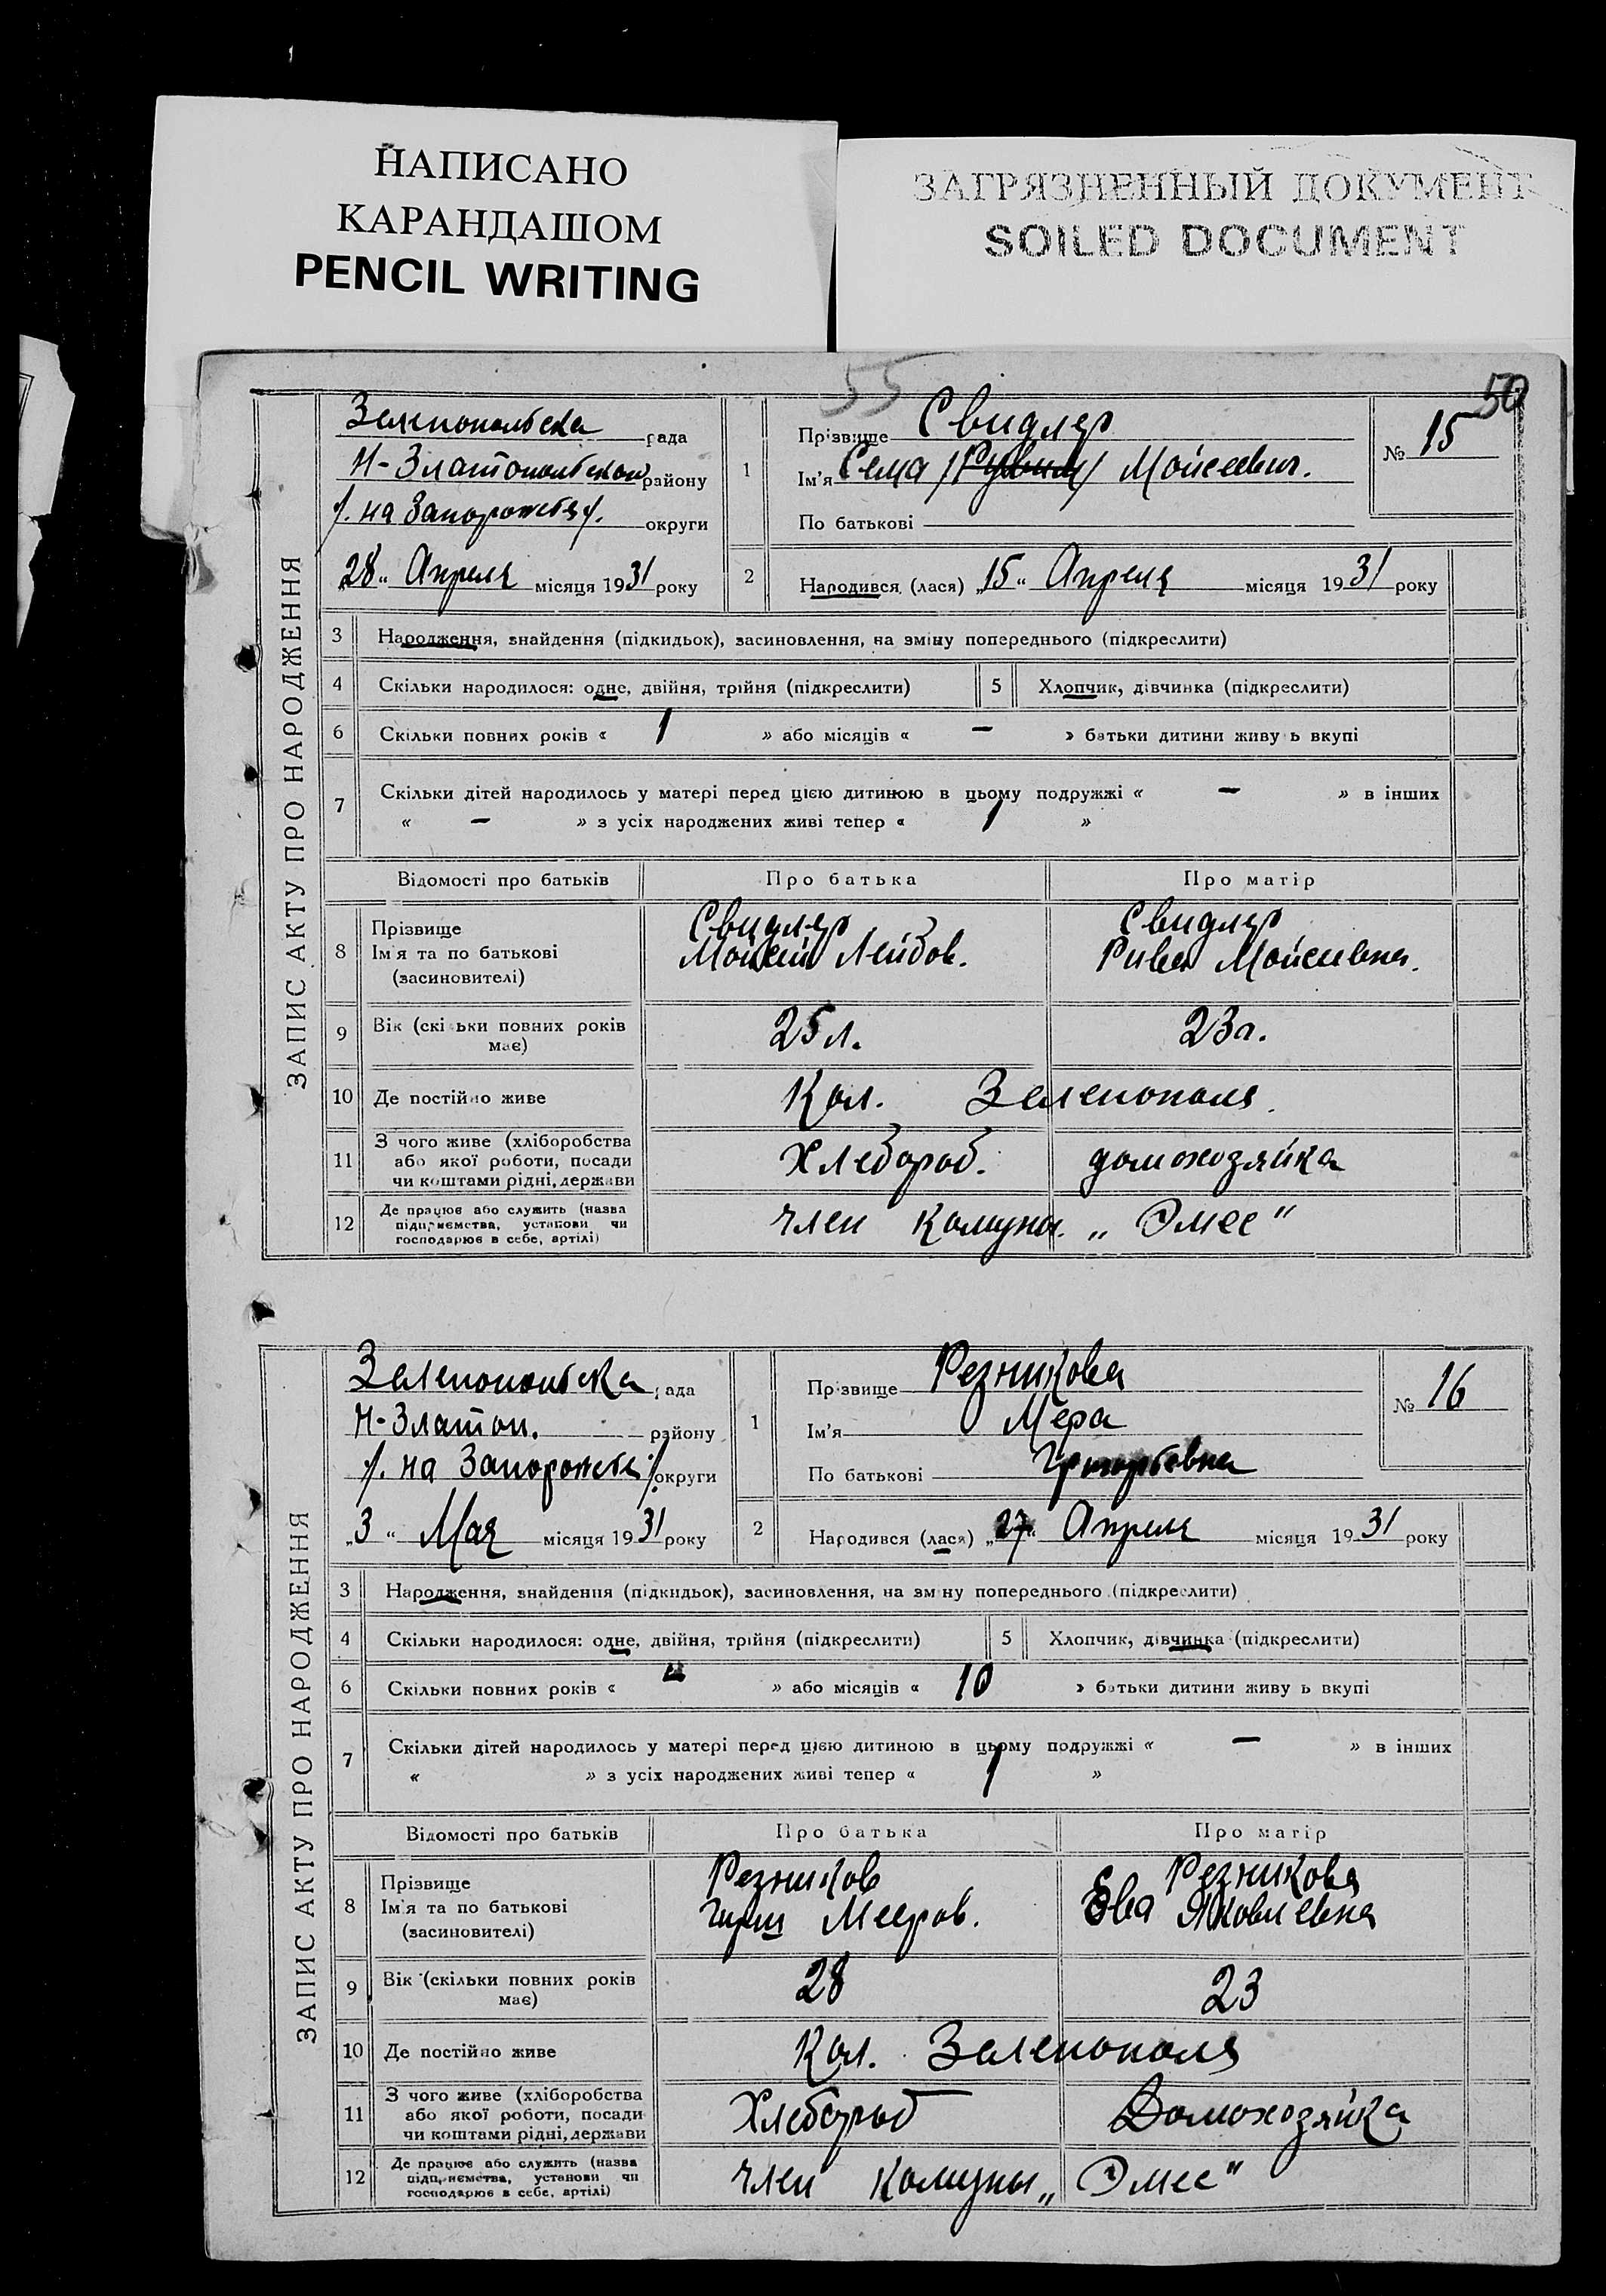 НАПИСАНО
КАРАНДАШОМ
PENCIL WRITING
ЗАГРЯЗНЕННЫЙ ДОКУМЕНТ
SOILED DOCUMENT
55
50
ЗАПИС АКТУ ПРО НАРОДЖЕННЯ
Зеленопольска рада
Н-Златопольскои району
/. на Запорожье/. округи
„28" Апреля місяця 1931 року
1 Прізвище Свидлер
Ім'я Сема /Рувим/ Мойсеевич.
По батькові
№ 15
2 Народився (лася) „15" Апреля місяця 1931 року
3 Народження, знайдення (підкидьок), засиновлення, на зміну попереднього (підкреслити)
4 Скільки народилося: одне, двійня, трійня (підкреслити) 5 Хлопчик, дівчинка (підкреслити)
6 Скільки повних років « 1 » або місяців « — » батьки дитини живу ь вкупі
7 Скільки дітей народилось у матері перед цією дитиною в цьому подружжі « — » в інших
« — » з усіх народжених живі тепер « 1 »
Відомості про батьків Про батька Про матір
8 Прізвище Свидлер Свидлер
Ім'я та по батькові Мойсей Лейбов. Рива Мойсеевна.
(засиновителі)
9 Вік (скі ьки повних років має) 25 л. 23 г.
10 Де постійно живе Кол. Зеленополя.
11 З чого живе (хліборобства або якої роботи, посади чи коштами рідні, держави Хлебороб. домохозяйка
12 Де працює або служить (назва підприємства, установи чи господарює в себе, артілі) член комуны. „Эмес"
ЗАПИС АКТУ ПРО НАРОДЖЕННЯ
Зеленопольска рада
Н-Златоп. району
/. на Запорожье/. округи
„3" Мая місяця 1931 року
1 Прізвище Резникова
Ім'я Мера
По батькові Григорьевна
№ 16
2 Народився (лася) „27" Апреля місяця 1931 року
3 Народження, знайдення (підкидьок), засиновлення, на зміну попереднього (підкреслити)
4 Скільки народилося: одне, двійня, трійня (підкреслити) 5 Хлопчик, дівчинка (підкреслити)
6 Скільки повних років « — » або місяців « 10 » батьки дитини живу ь вкупі
7 Скільки дітей народилось у матері перед цією дитиною в цьому подружжі « — » в інших
« » з усіх народжених живі тепер « 1 »
Відомості про батьків Про батька Про матір
8 Прізвище Резников Резникова
Ім'я та по батькові Гирш Мееров. Ева Яковлевна
(засиновителі)
9 Вік (скільки повних років має) 28 23
10 Де постійно живе Кол. Зеленополя
11 З чого живе (хліборобства або якої роботи, посади чи коштами рідні, держави Хлебороб Домохозяйка
12 Де працює або служить (назва підприємства, установи чи господарює в себе, артілі) член комуны „Эмес"